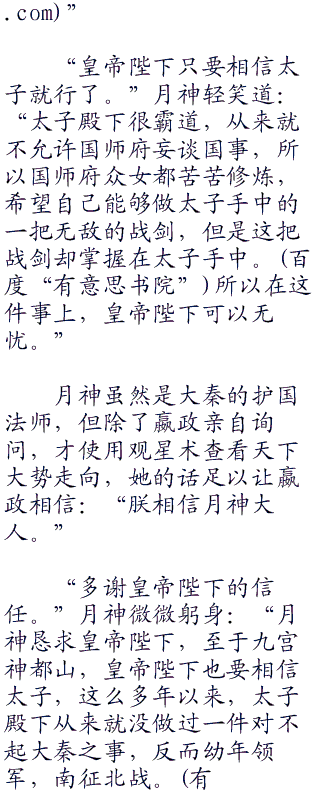 .com)”
“皇帝陛下只要相信太
子就行了。”月神轻笑道：
“太子殿下很霸道，从来就
不允许国师府妄谈国事，所
以国师府众女都苦苦修炼，
希望自己能够做太子手中的
一把无敌的战剑，但是这把
战剑却掌握在太子手中。(百
度“有意思书院”)所以在这
件事上，皇帝陛下可以无
忧。”
月神虽然是大秦的护国
法师，但除了嬴政亲自询
问，才使用观星术查看天下
大势走向，她的话足以让嬴
政相信：“朕相信月神大
人。”
“多谢皇帝陛下的信
任。”月神微微躬身：“月
神恳求皇帝陛下，至于九宫
神都山，皇帝陛下也要相信
太子，这么多年以来，太子
殿下从来就没做过一件对不
起大秦之事，反而幼年领
军，南征北战。(有